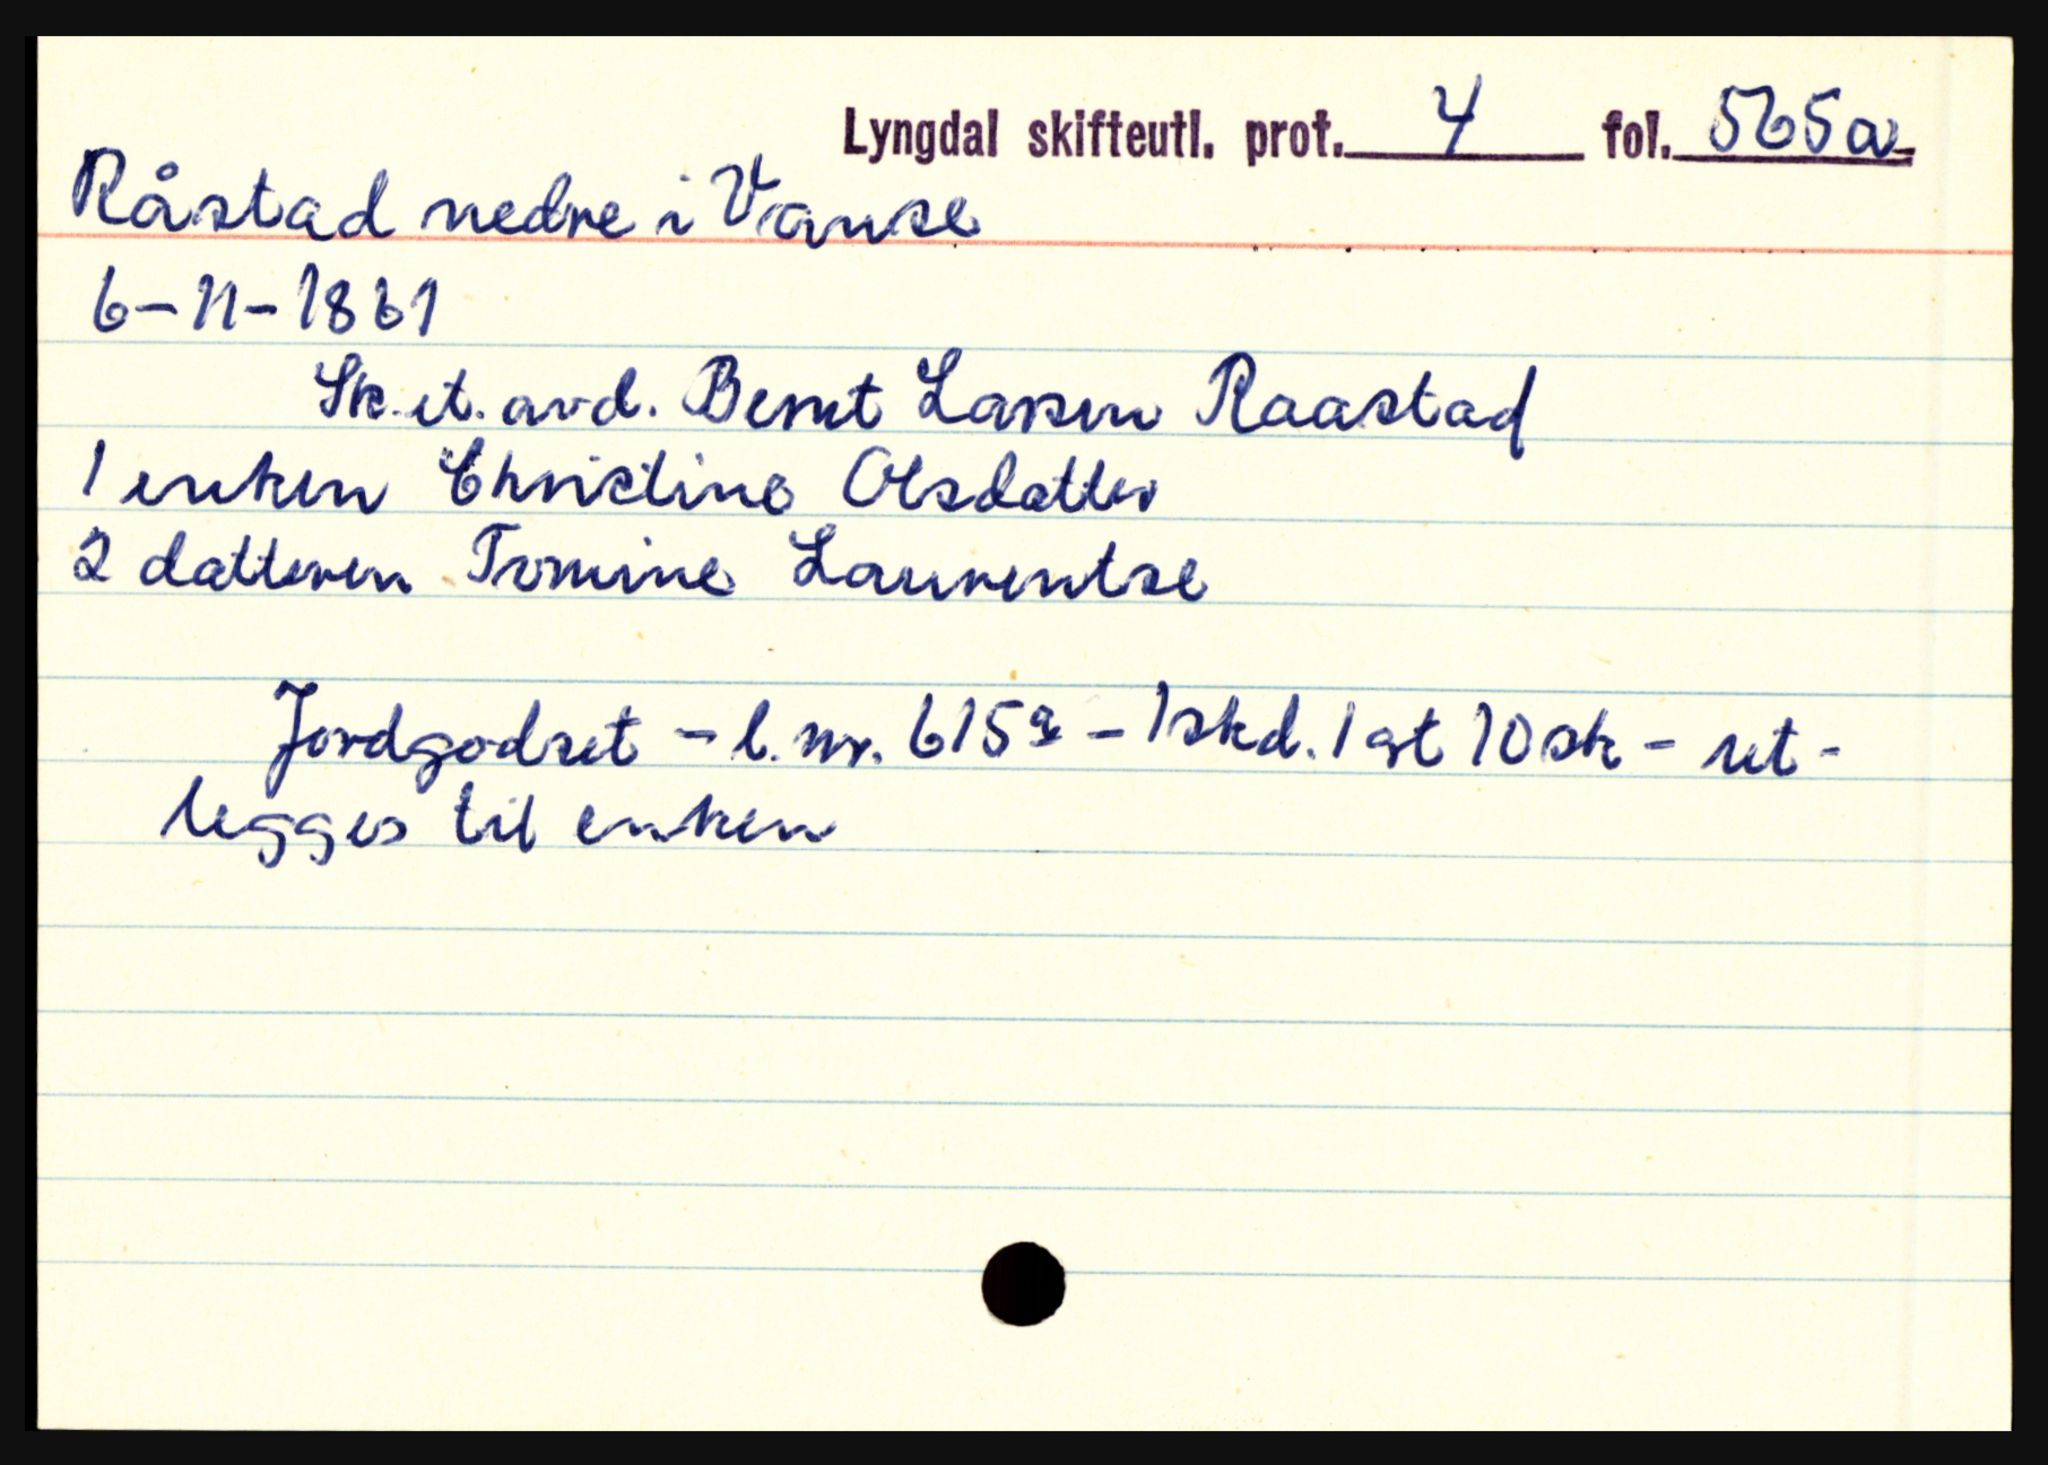 Lyngdal skifteutl. prot. 4 fol. 565a
Råstad nedre i Vanse
6-11-1861
Sk. et. avd. Bernt Larsen Raastad
1 enken Christine Olsdatter
2 datteren Tomine Laurentse
Jordgodset - l. nr. 615a - 1 skd. 1 ort 10 sk - ut-
legges til enken